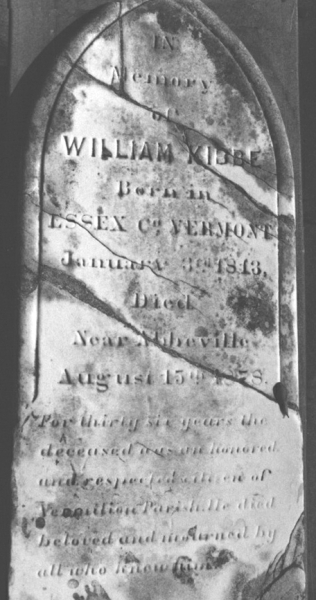 IN
Memory
of
WILLIAM KIBBE
Born in
ESSEX Co. VERMONT
January 3rd 1843.
Died
Near Abbeville
August 15th 1878.
For thirty six years the
deceased was an honored
and respected citizen of
Vermilion Parish. He died
beloved and mourned by
all who knew him.